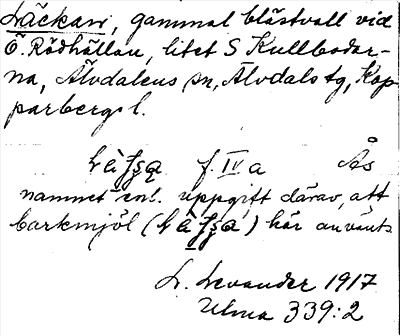 Läckan, gammal blästvall vid
Ö. Rödhällan, litet S Kullbodar-
na, Älvdalens sn, Älvdals tg, Kop
parbergs l.
f. IV a Ås
namnet enl. uppgift därav, att
barkmjöl ( ) här använts
L. Levander 1917
Ulma 339:2